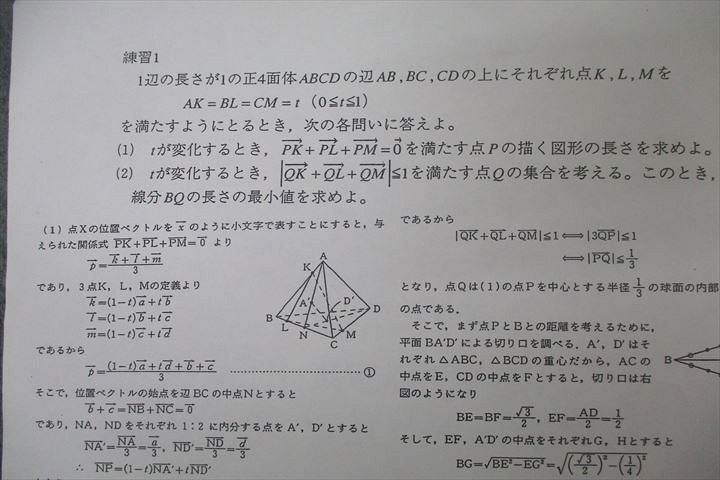 練習1
1辺の長さが1の正4面体ABCDの辺AB,BC,CDの上にそれぞれ点K,L,Mを
AK=BL=CM=t (0≦t≦1)
を満たすようにとるとき,次の各問いに答えよ。
(1) tが変化するとき,$\overrightarrow{PK}+\overrightarrow{PL}+\overrightarrow{PM}=\vec{0}$を満たす点Pの描く図形の長さを求めよ。
(2) tが変化するとき,$|\overrightarrow{QK}+\overrightarrow{QL}+\overrightarrow{QM}|≦1$を満たす点Qの集合を考える。このとき,
線分BQの長さの最小値を求めよ。
(1) 点Xの位置ベクトルを$\vec{x}$のように小文字で表すことにすると,与
えられた関係式 $\overrightarrow{PK}+\overrightarrow{PL}+\overrightarrow{PM}=\vec{0}$ より
$\vec{p}=\frac{\vec{k}+\vec{l}+\vec{m}}{3}$
であり,3点K,L,Mの定義より
$\vec{k}=(1-t)\vec{a}+t\vec{b}$
$\vec{l}=(1-t)\vec{b}+t\vec{c}$
$\vec{m}=(1-t)\vec{c}+t\vec{d}$
であるから
$\vec{p}=\frac{(1-t)\vec{a}+t\vec{d}+\vec{b}+\vec{c}}{3}$ ……………………①
そこで,位置ベクトルの始点を辺BCの中点Nとすると
$\vec{b}+\vec{c}=\overrightarrow{NB}+\overrightarrow{NC}=\vec{0}$
であり,NA,NDをそれぞれ1:2に内分する点をA′,D′とすると
$\overrightarrow{NA'}=\frac{\overrightarrow{NA}}{3}=\frac{\vec{a}}{3}$, $\overrightarrow{ND'}=\frac{\overrightarrow{ND}}{3}=\frac{\vec{d}}{3}$
∴ $\overrightarrow{NP}=(1-t)\overrightarrow{NA'}+t\overrightarrow{ND'}$
A
K
A′
D′
B
D
L
N
C
M
であるから
$|\overrightarrow{QK}+\overrightarrow{QL}+\overrightarrow{QM}|≦1 ⟺ |3\overrightarrow{QP}|≦1$
$⟺ |\overrightarrow{PQ}|≦\frac{1}{3}$
となり,点Qは(1)の点Pを中心とする半径$\frac{1}{3}$の球面の内部
の点である.
そこで,まず点PとBとの距離を考えるために,
平面BA′D′による切り口を調べる.A′,D′はそ
れぞれ△ABC,△BCDの重心だから,ACの
中点をE,CDの中点をFとすると,切り口は右
図のようになり
$BE=BF=\frac{\sqrt{3}}{2}$, $EF=\frac{AD}{2}=\frac{1}{2}$
そして,EF,A′D′の中点をそれぞれG,Hとすると
$BG=\sqrt{BE^2-EG^2}=\sqrt{\left(\frac{\sqrt{3}}{2}\right)^2-\left(\frac{1}{4}\right)^2}$
B